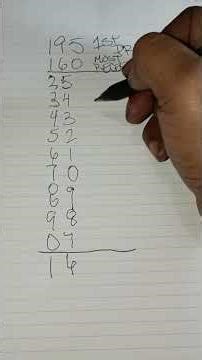 195 1ST
160 MOST
25
34
43
52
61
70
89
98
07
16